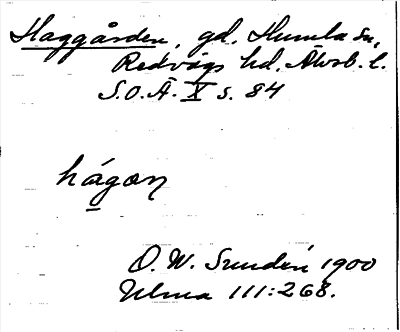 Haggården, gd. Humla sn,
Redvägs hd. Älvsb. l.
S.O.Ä. X s. 84
hágon
O. W. Sundén 1900
Ulma 111:268.